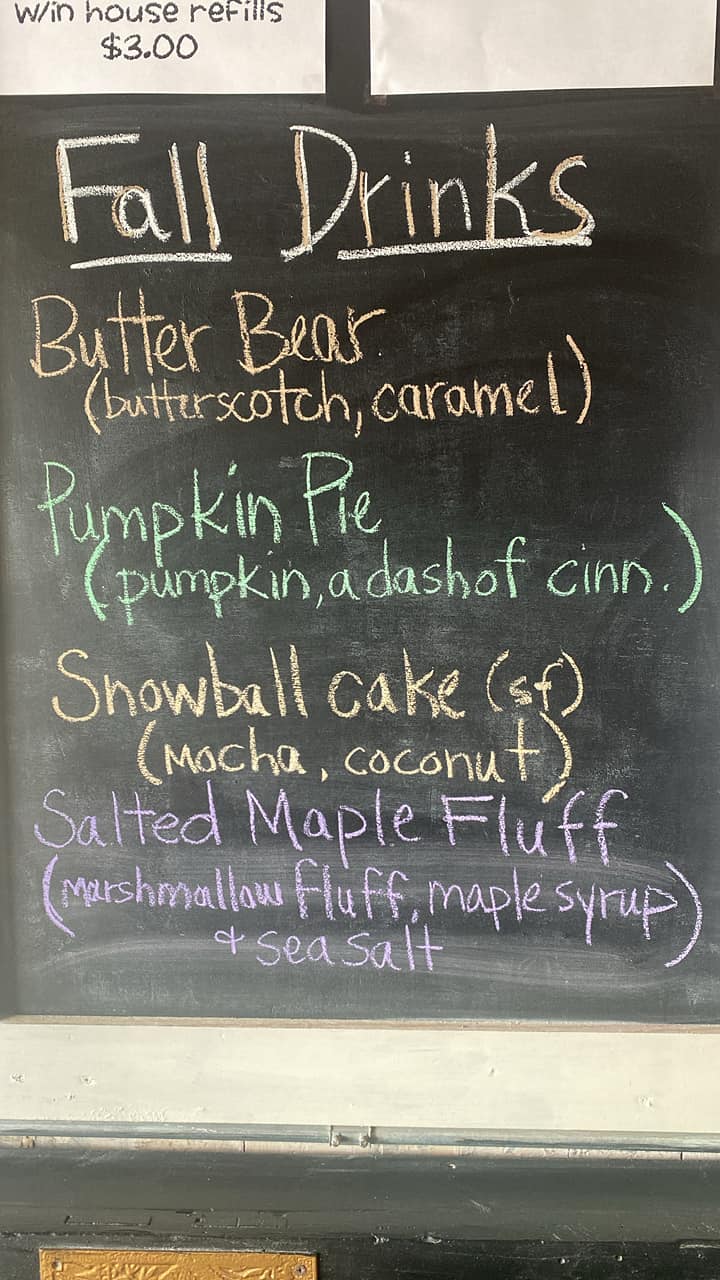 w/in house refills
$3.00
Fall Drinks
Butter Bear
(butterscotch, caramel)
Pumpkin Pie
(pumpkin, a dash of cinn.)
Snowball cake (sf)
(Mocha, coconut)
Salted Maple Fluff
(marshmallow fluff, maple syrup)
& sea salt